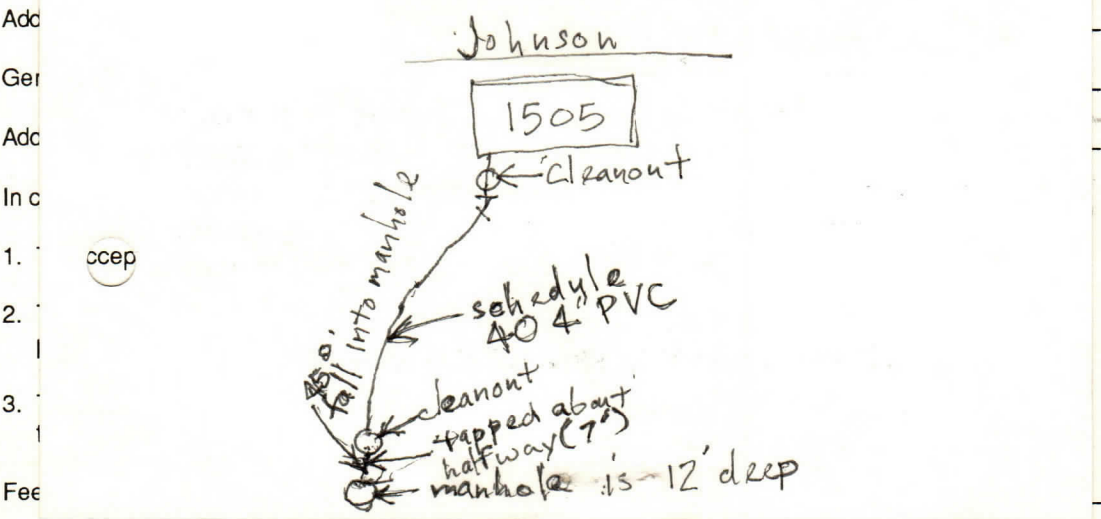 Add
Ger
Add
In c
1.
2.
3.
Fee
ccep
Johnson
1505
cleanout
fall into manhole
schedule
40 4" PVC
cleanout
tapped about
halfway (7')
manhole is 12' deep